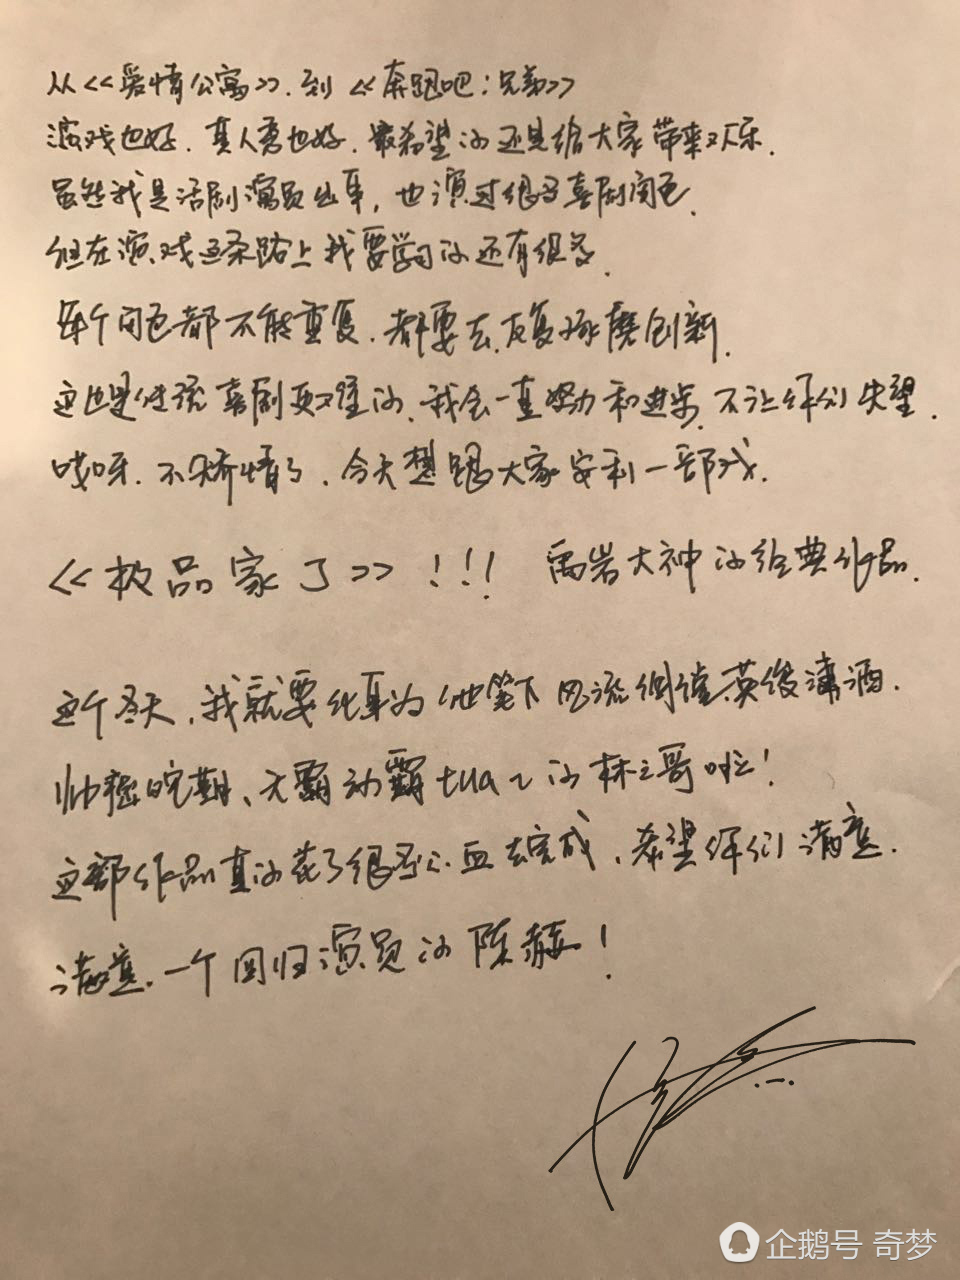 从<<爱情公寓>>.到<<奔跑吧:兄弟>>
演戏也好.真人秀也好.最希望的还是给大家带来欢乐.
虽然我是话剧演员出身,也演过很多喜剧角色.
但在演戏这条路上我要学习的还有很多.
每个角色都不能重复.都要去反复琢磨创新.
这也是传统喜剧更难的.我会一直努力和进步.不让你们失望.
哎呀.不矫情了.今天想跟大家安利一部戏.
<<极品家丁>>!!! 禹岩大神的经典作品.
这个冬天,我就要化身为他笔下风流倜傥英俊潇洒.
帅裂苍穹、无霸动霸tua~的林三哥啦!
这部作品真的花了很多心血去完成.希望你们满意.
满意.一个回归演员的陈赫!
企鹅号 奇梦